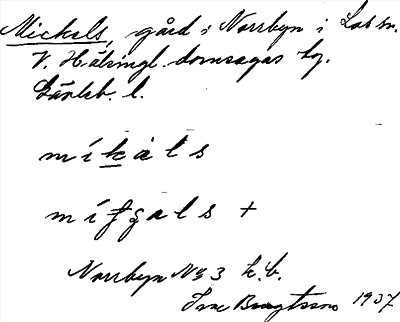 Mickels, gård i Norrbyn i Los sn.
V. Hälsingl. domsagas tg.
Gävleb. l.
míkåls
mífgals +
Norrbyn No 3 k.b.
Bengtsson 1937